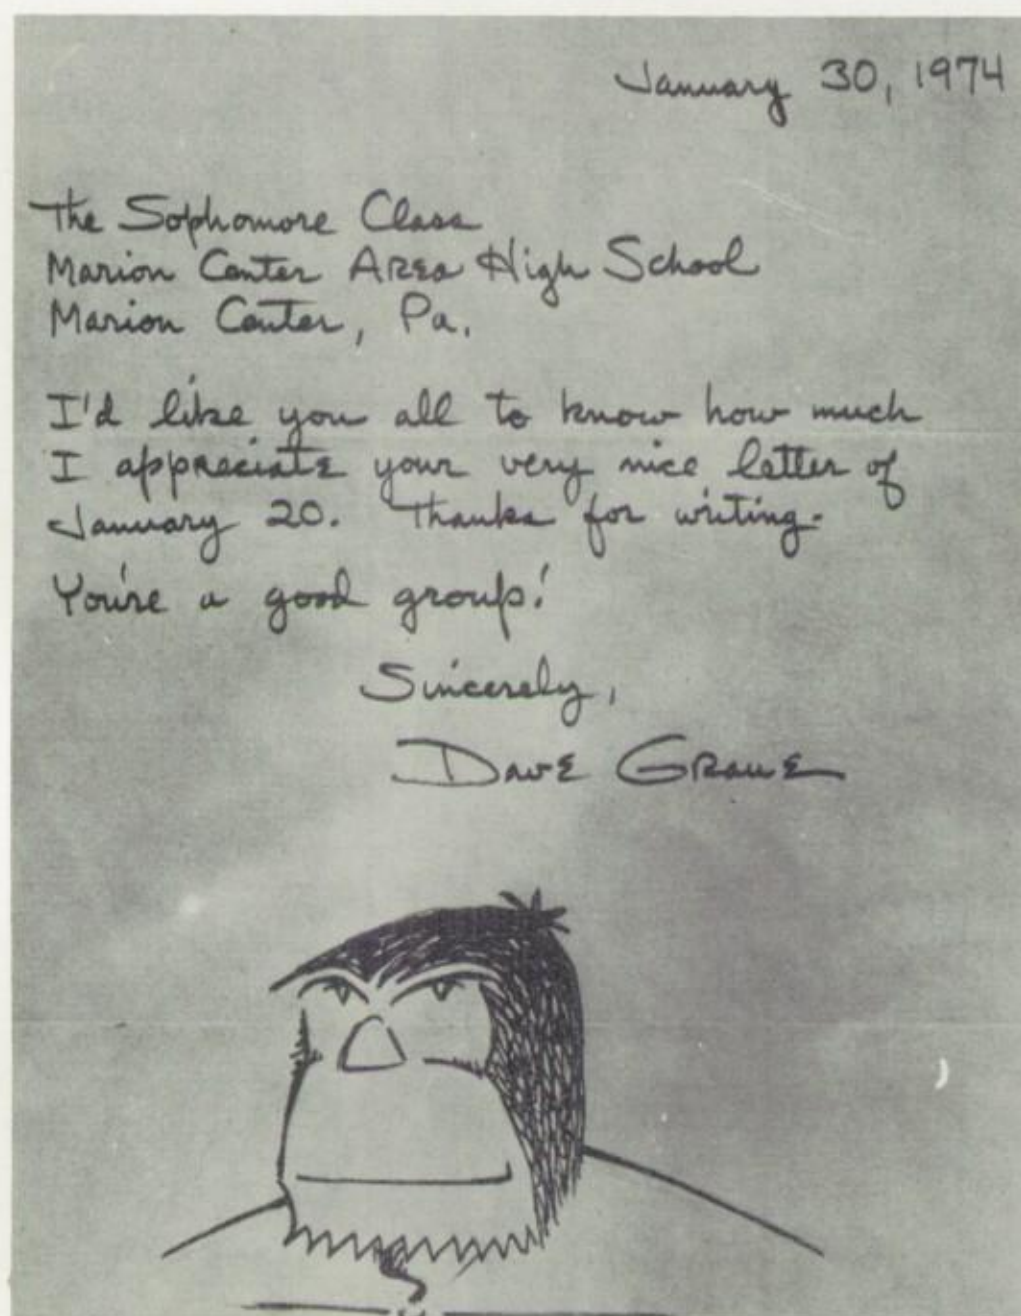 January 30, 1974
The Sophomore Class
Marion Center Area High School
Marion Center, Pa.
I'd like you all to know how much
I appreciate your very nice letter of
January 20. Thanks for writing.
You're a good group!
Sincerely,
Dave Graue